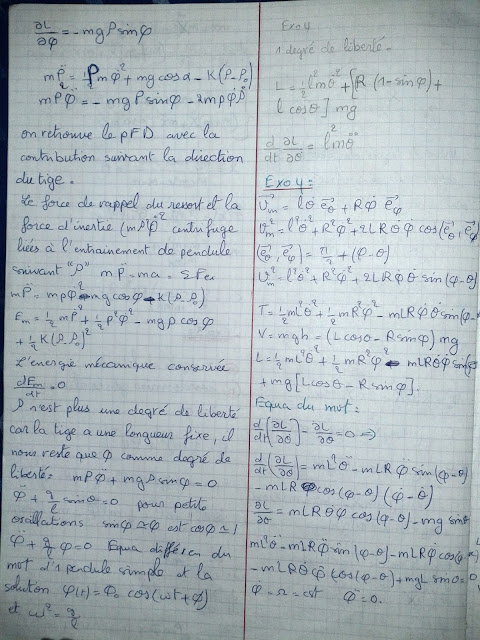 ∂L/∂φ = -mgρ sinφ
mρ̈ = ρmφ̇² + mg cosα - K(ρ-ρ₀)
mρ²φ̈ = -mgρ sinφ - 2mρφ̇ρ̇
on retrouve le PFD avec la
contribution suivant la direction
du tige.
Le force de rappel du ressort et la
force d'inertie (mρφ̇²) centrifuge
liées à l'entrainement de pendule
suivant "ρ" mρ̈ = ma = ΣFex
mρ̈ = mρφ̇² mg cosφ - K(ρ-ρ₀)
Em = ½mρ̇² + ½ρ²φ̇² - mgρ cosφ
+ ½K(ρ-ρ₀)²
L'energie mécanique conservée
dEm/dt = 0
ρ n'est plus une degré de liberté
car la tige a une longueur fixe, il
nous reste que φ comme degré de
liberté: mρφ̈ + mgρ sinφ = 0
φ̈ + g/l sinθ = 0 pour petite
oscillations sinφ ≃ φ est cosφ ≃ 1
φ̈ + g/l φ = 0 Equa différen du
mot d'1 pendule simple et la
solution φ(t) = φ₀ cos(ωt + ϕ)
et ω² = g/l
Exo 4
1 degré de liberté.
L = ½l²mθ̇² + [R(1-sinφ) +
l cosθ] mg
d/dt ∂L/∂θ̇ = l²mθ̈
Exo 4:
V⃗m = lθ̇ e⃗θ + Rφ̇ e⃗φ
V²m = l²θ̇² + R²φ̇² + 2LRθ̇φ̇ cos(e⃗θ, e⃗φ)
(e⃗θ, e⃗φ) = π/2 + (φ-θ)
V²m = l²θ̇² + R²φ̇² + 2LRφ̇θ̇ sin(φ-θ)
T = ½ml²θ̇² + ½mR²φ̇² - mLRφ̇θ̇ sin(φ-
V = mgh = (L cosθ - R sinφ) mg
L = ½mL²θ̇² + ½mR²φ̇² - mLRθ̇φ̇ sin(φ
+ mg[L cosθ - R sinφ].
Equa du mot:
d/dt(∂L/∂θ̇) - ∂L/∂θ = 0 ⇒
d/dt(∂L/∂θ̇) = mL²θ̈ - mLRφ̈ sin(φ-θ)
- mLRφ̇ cos(φ-θ) (φ̇-θ̇)
∂L/∂θ = mLRθ̇φ̇ cos(φ-θ) - mg sinθ
mL²θ̈ - mLRφ̈ sin(φ-θ) - mLRφ̇² cos(φ-
- mLRθ̇φ̇ cos(φ-θ) + mgL sinθ = 0
φ̇ = Ω = cst φ̈ = 0.